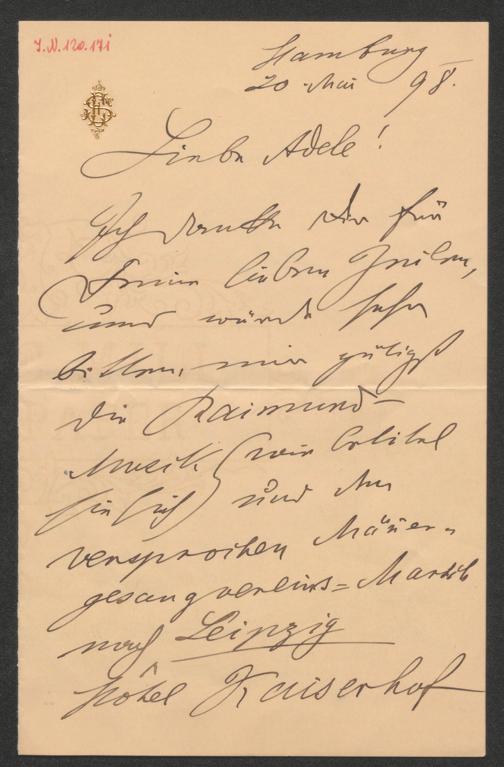 I.N. 120.171
Hamburg
20 Mai 98.
Liebe Adele!
Ich danke Dir für
Deine lieben Zeilen,
und würde sehr
bitten, mir gütigst
die Raimund-
Musik (wie
sie sich) und den
versprochen Mäner=
gesangvereins=Marsch
nach Leipzig
Hôtel Kaiserhof